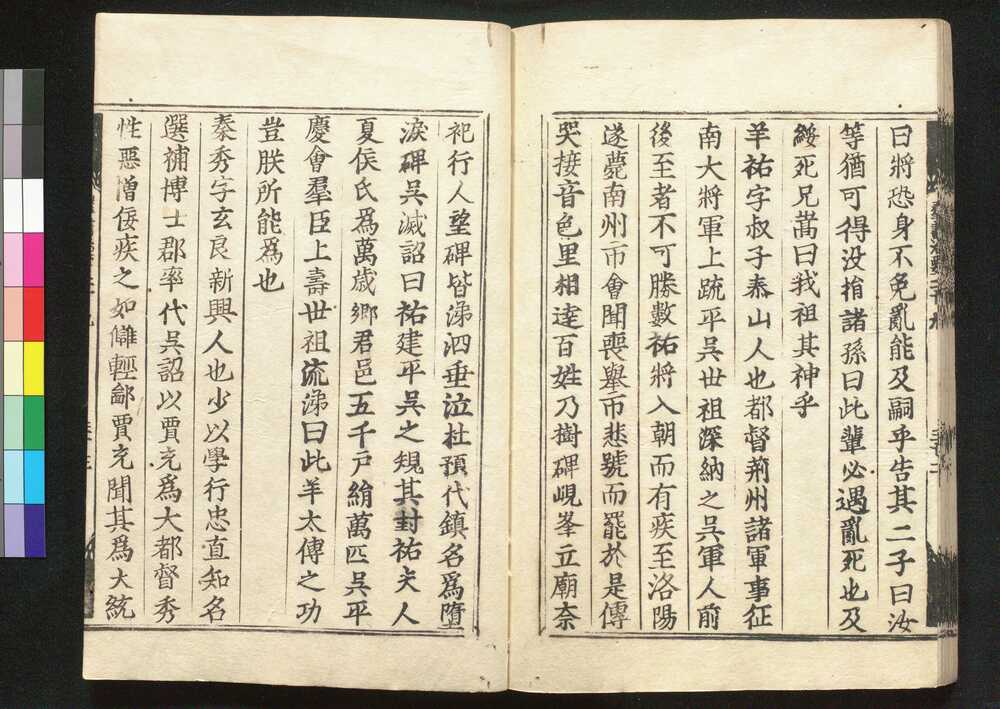 曰將恐身不免亂能及嗣乎告其二子曰汝
等猶可得没指諸孫曰此輩必遇亂死也及
綏死兄嵩曰我祖其神乎
羊祐字叔子泰山人也都督荊州諸軍事征
南大將軍上疏平吳世祖深納之吳軍人前
後至者不可勝數祐將入朝而有疾至洛陽
遂薨南州市會聞喪舉市悲號而罷於是傳
哭接音色里相達百姓乃樹碑峴峯立廟奈
祀行人望碑皆涕泗垂泣杜預代鎮名爲墮
淚碑吳滅詔曰祐建平吳之規其封祐夫人
夏侯氏爲萬歲鄉君邑五千戶絹萬匹吳平
慶會羣臣上壽世祖流涕曰此羊太傅之功
豈朕所能爲也
秦秀字玄良新興人也少以學行忠直知名
選補博士郡率代吳詔以賈充爲大都督秀
性惡憎佞疾之如讎輕鄙賈充聞其爲大統